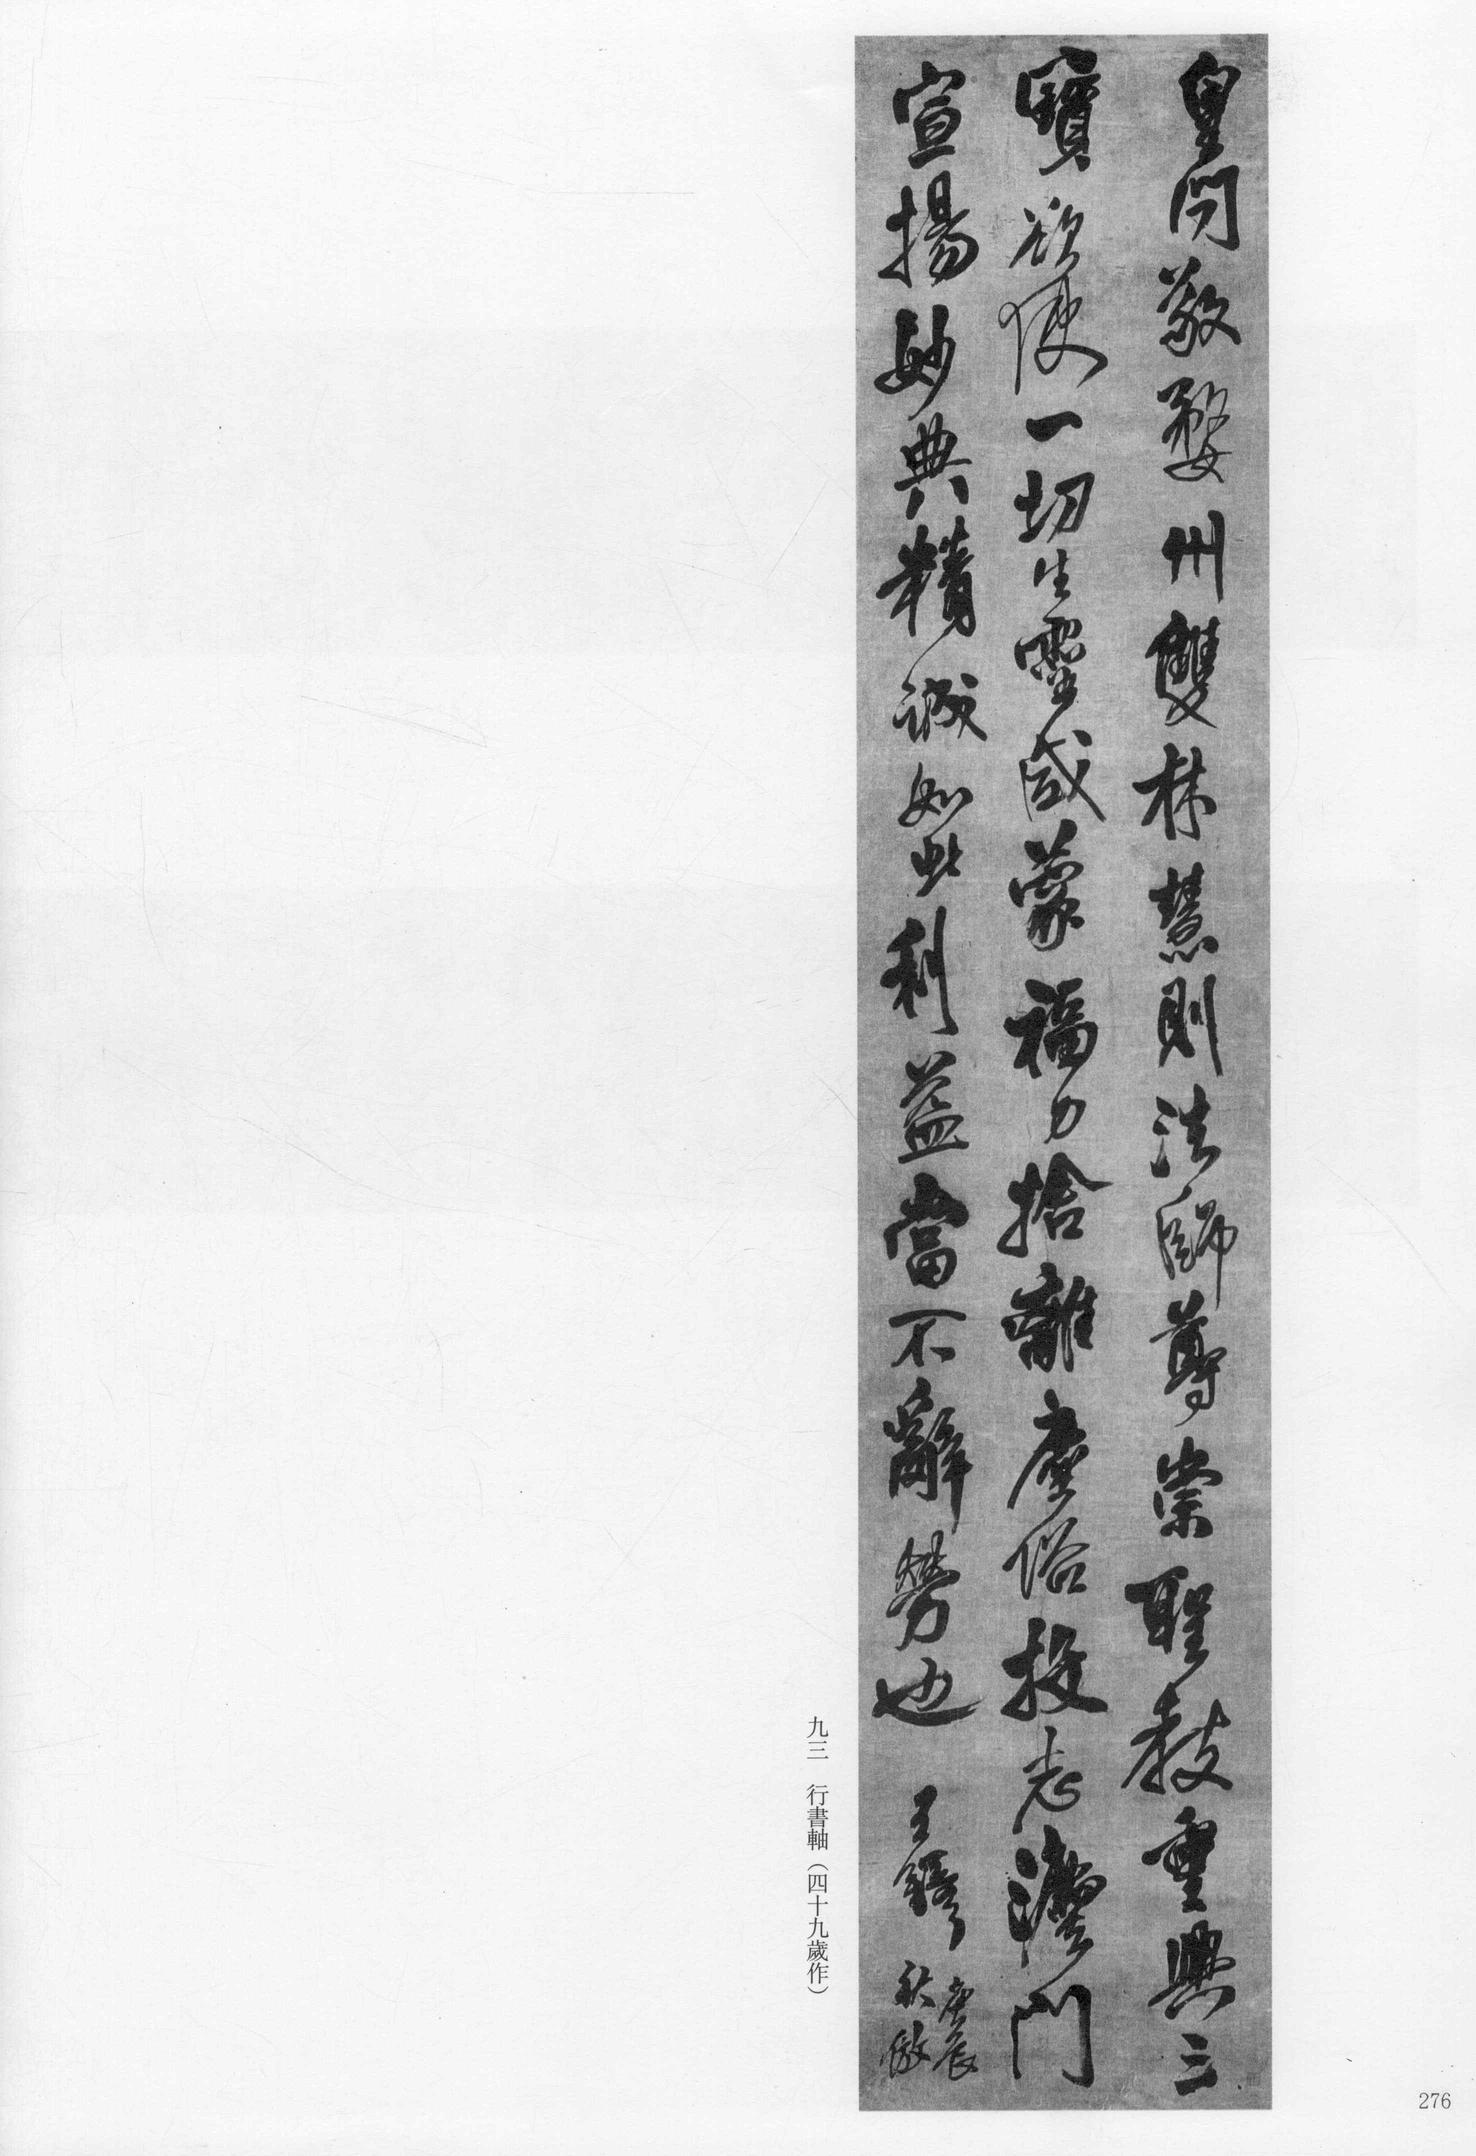 皇問敬婺州雙林慧則法師尊崇聖教重興三
寶欲使一切生靈咸蒙福力捨離塵俗投志灋門
宣揚妙典精誠如此利益當不辭勞也 王鐸 庚辰
秋倣
九三 行書軸（四十九歲作）
276